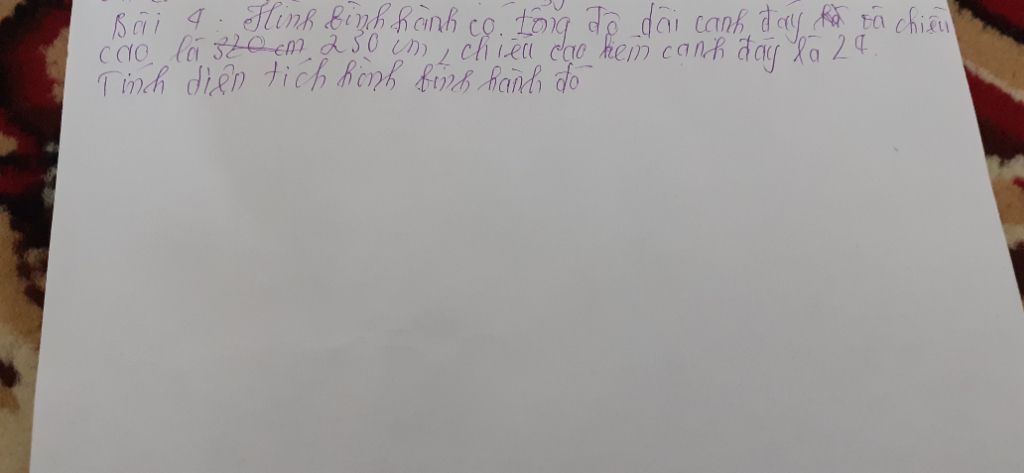 Bài 4: Hình bình hành có tổng độ dài cạnh đáy và chiều
cao là 230 cm, chiều cao kém cạnh đáy là 24.
Tính diện tích hình bình hành đó